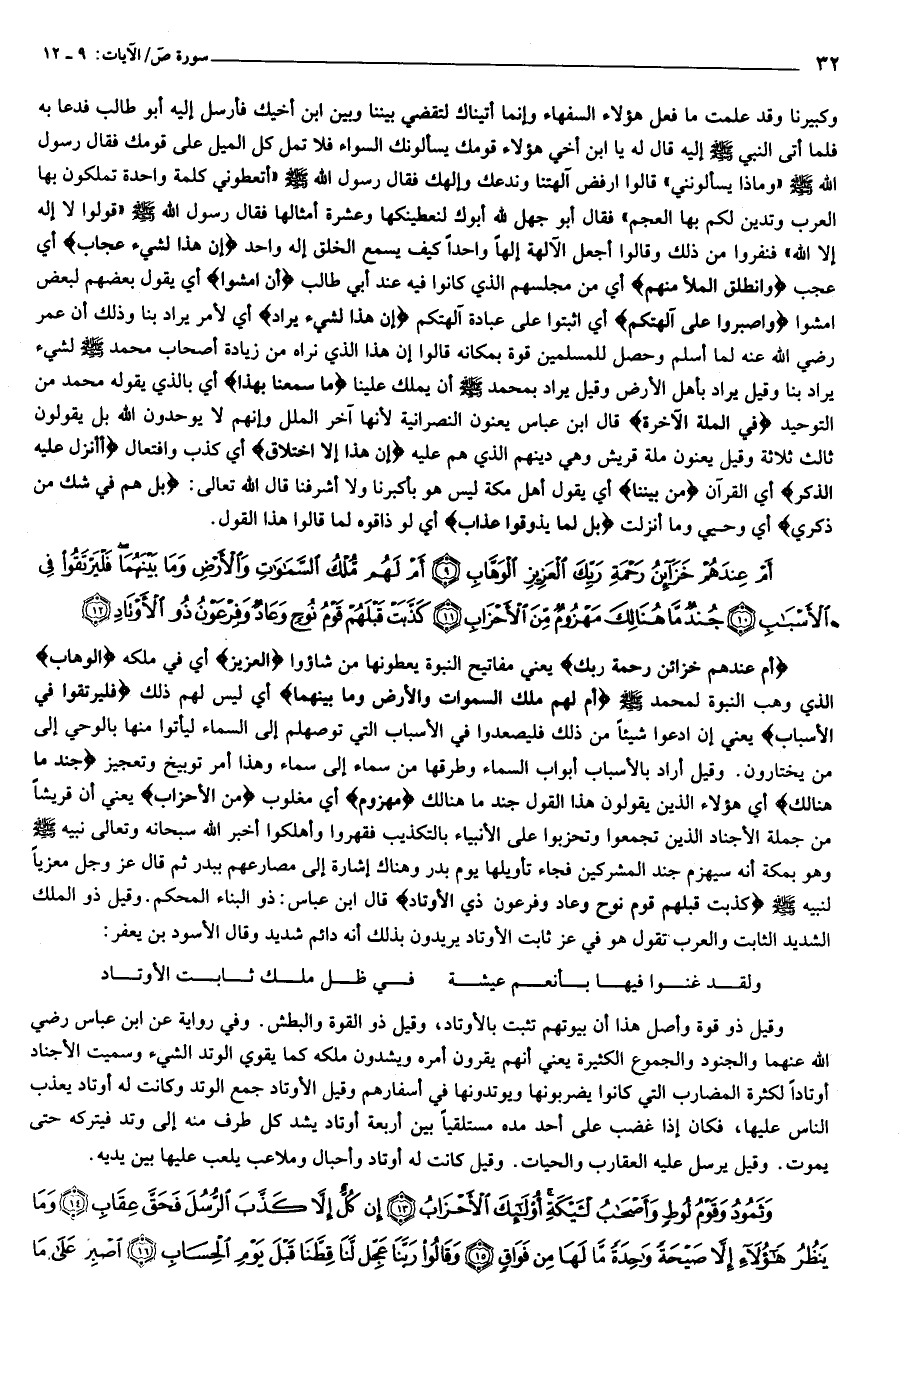 ٣٢ سورة ص/ الآيات: ٩ ـ ١٢
وكبيرنا وقد علمت ما فعل هؤلاء السفهاء وإنما أتيناك لتقضي بيننا وبين ابن أخيك فأرسل إليه أبو طالب فدعا به
فلما أتى النبي ﷺ إليه قال له يا ابن أخي هؤلاء قومك يسألونك السواء فلا تمل كل الميل على قومك فقال رسول
الله ﷺ «وماذا يسألونني» قالوا ارفض آلهتنا وندعك وإلهك فقال رسول الله ﷺ «أتعطوني كلمة واحدة تملكون بها
العرب وتدين لكم بها العجم» فقال أبو جهل لله أبوك لنعطينكها وعشرة أمثالها فقال رسول الله ﷺ «قولوا لا إله
إلا الله» فنفروا من ذلك وقالوا أجعل الآلهة إلهاً واحداً كيف يسمع الخلق إله واحد ﴿إن هذا لشيء عجاب﴾ أي
عجب ﴿وانطلق الملأ منهم﴾ أي من مجلسهم الذي كانوا فيه عند أبي طالب ﴿أن امشوا﴾ أي يقول بعضهم لبعض
امشوا ﴿واصبروا على آلهتكم﴾ أي اثبتوا على عبادة آلهتكم ﴿إن هذا لشيء يراد﴾ أي لأمر يراد بنا وذلك أن عمر
رضي الله عنه لما أسلم وحصل للمسلمين قوة بمكانه قالوا إن هذا الذي نراه من زيادة أصحاب محمد ﷺ لشيء
يراد بنا وقيل يراد بأهل الأرض وقيل يراد بمحمد ﷺ أن يملك علينا ﴿ما سمعنا بهذا﴾ أي بالذي يقوله محمد من
التوحيد ﴿في الملة الآخرة﴾ قال ابن عباس يعنون النصرانية لأنها آخر الملل وإنهم لا يوحدون الله بل يقولون
ثالث ثلاثة وقيل يعنون ملة قريش وهي دينهم الذي هم عليه ﴿إن هذا إلا اختلاق﴾ أي كذب وافتعال ﴿أأنزل عليه
الذكر﴾ أي القرآن ﴿من بيننا﴾ أي يقول أهل مكة ليس هو بأكبرنا ولا أشرفنا قال الله تعالى: ﴿بل هم في شك من
ذكري﴾ أي وحيي وما أنزلت ﴿بل لما يذوقوا عذاب﴾ أي لو ذاقوه لما قالوا هذا القول.
أَمْ عِندَهُمْ خَزَآئِنُ رَحْمَةِ رَبِّكَ ٱلْعَزِيزِ ٱلْوَهَّابِ ﴿٩﴾ أَمْ لَهُم مُّلْكُ ٱلسَّمَٰوَٰتِ وَٱلْأَرْضِ وَمَا بَيْنَهُمَا ۖ فَلْيَرْتَقُوا۟ فِى
ٱلْأَسْبَٰبِ ﴿١٠﴾ جُندٌ مَّا هُنَالِكَ مَهْزُومٌ مِّنَ ٱلْأَحْزَابِ ﴿١١﴾ كَذَّبَتْ قَبْلَهُمْ قَوْمُ نُوحٍ وَعَادٌ وَفِرْعَوْنُ ذُو ٱلْأَوْتَادِ ﴿١٢﴾
﴿أم عندهم خزائن رحمة ربك﴾ يعني مفاتيح النبوة يعطونها من شاؤوا ﴿العزيز﴾ أي في ملكه ﴿الوهاب﴾
الذي وهب النبوة لمحمد ﷺ ﴿أم لهم ملك السموات والأرض وما بينهما﴾ أي ليس لهم ذلك ﴿فليرتقوا في
الأسباب﴾ يعني إن ادعوا شيئاً من ذلك فليصعدوا في الأسباب التي توصلهم إلى السماء ليأتوا منها بالوحي إلى
من يختارون. وقيل أراد بالأسباب أبواب السماء وطرقها من سماء إلى سماء وهذا أمر توبيخ وتعجيز ﴿جند ما
هنالك﴾ أي هؤلاء الذين يقولون هذا القول جند ما هنالك ﴿مهزوم﴾ أي مغلوب ﴿من الأحزاب﴾ يعني أن قريشاً
من جملة الأجناد الذين تجمعوا وتحزبوا على الأنبياء بالتكذيب فقهروا وأهلكوا أخبر الله سبحانه وتعالى نبيه ﷺ
وهو بمكة أنه سيهزم جند المشركين فجاء تأويلها يوم بدر وهناك إشارة إلى مصارعهم ببدر ثم قال عز وجل معزياً
لنبيه ﷺ ﴿كذبت قبلهم قوم نوح وعاد وفرعون ذي الأوتاد﴾ قال ابن عباس: ذو البناء المحكم. وقيل ذو الملك
الشديد الثابت والعرب تقول هو في عز ثابت الأوتاد يريدون بذلك أنه دائم شديد وقال الأسود بن يعفر:
ولقد غنوا فيها بأنعم عيشة في ظل ملك ثابت الأوتاد
وقيل ذو قوة وأصل هذا أن بيوتهم تثبت بالأوتاد، وقيل ذو القوة والبطش. وفي رواية عن ابن عباس رضي
الله عنهما والجنود والجموع الكثيرة يعني أنهم يقرون أمره ويشدون ملكه كما يقوي الوتد الشيء وسميت الأجناد
أوتاداً لكثرة المضارب التي كانوا يضربونها ويوتدونها في أسفارهم وقيل الأوتاد جمع الوتد وكانت له أوتاد يعذب
الناس عليها، فكان إذا غضب على أحد مده مستلقياً بين أربعة أوتاد يشد كل طرف منه إلى وتد فيتركه حتى
يموت. وقيل يرسل عليه العقارب والحيات. وقيل كانت له أوتاد وأحبال وملاعب يلعب عليها بين يديه.
وَثَمُودُ وَقَوْمُ لُوطٍ وَأَصْحَٰبُ لْـَٔيْكَةِ ۚ أُو۟لَٰٓئِكَ ٱلْأَحْزَابُ ﴿١٣﴾ إِن كُلٌّ إِلَّا كَذَّبَ ٱلرُّسُلَ فَحَقَّ عِقَابِ ﴿١٤﴾ وَمَا
يَنظُرُ هَٰٓؤُلَآءِ إِلَّا صَيْحَةً وَٰحِدَةً مَّا لَهَا مِن فَوَاقٍ ﴿١٥﴾ وَقَالُوا۟ رَبَّنَا عَجِّل لَّنَا قِطَّنَا قَبْلَ يَوْمِ ٱلْحِسَابِ ﴿١٦﴾ ٱصْبِرْ عَلَىٰ مَا